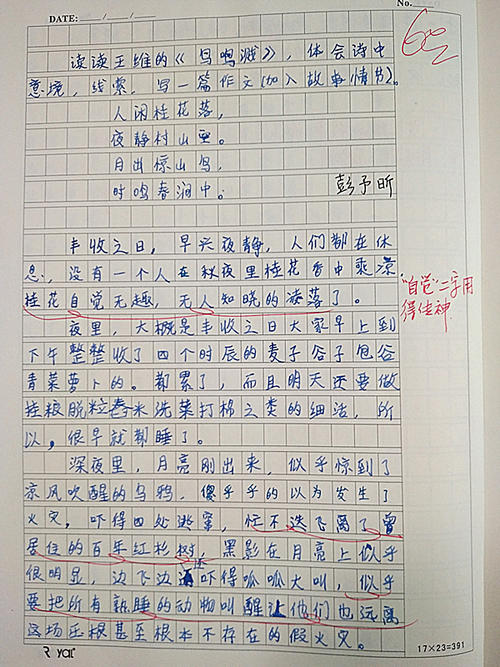 DATE: / /
No.
读读王维的《鸟鸣涧》，体会诗中
意境，线索，写一篇作文(加入故事情节)。
人闲桂花落，
夜静村山空。
月出惊山鸟，
时鸣春涧中。
彭予昕
丰收之日，早兴夜静，人们都在休
息，没有一个人在秋夜里桂花香中乘凉
桂花自觉无趣，无人知晓的凄落了。
"自觉"二字用
得传神
夜里，大概是丰收之日大家早上到
下午整整收了四个时辰的麦子谷子包谷
青菜萝卜的。都累了，而且明天还要做
挂粮脱粒舂米洗菜打棉之类的细活，所
以，很早就都睡了。
深夜里，月亮刚出来，似乎惊到了
凉风吹醒的乌鸦，傻乎乎的以为发生了
火灾，吓得四处逃窜，忙不迭飞离了曾
居住的百年红杉树，黑影在月亮上似乎
很明显，边飞边还吓得呱呱大叫，似乎
要把所有熟睡的动物叫醒让他们也远离
这场压根甚至根本不存在的假火灾。
17×23=391